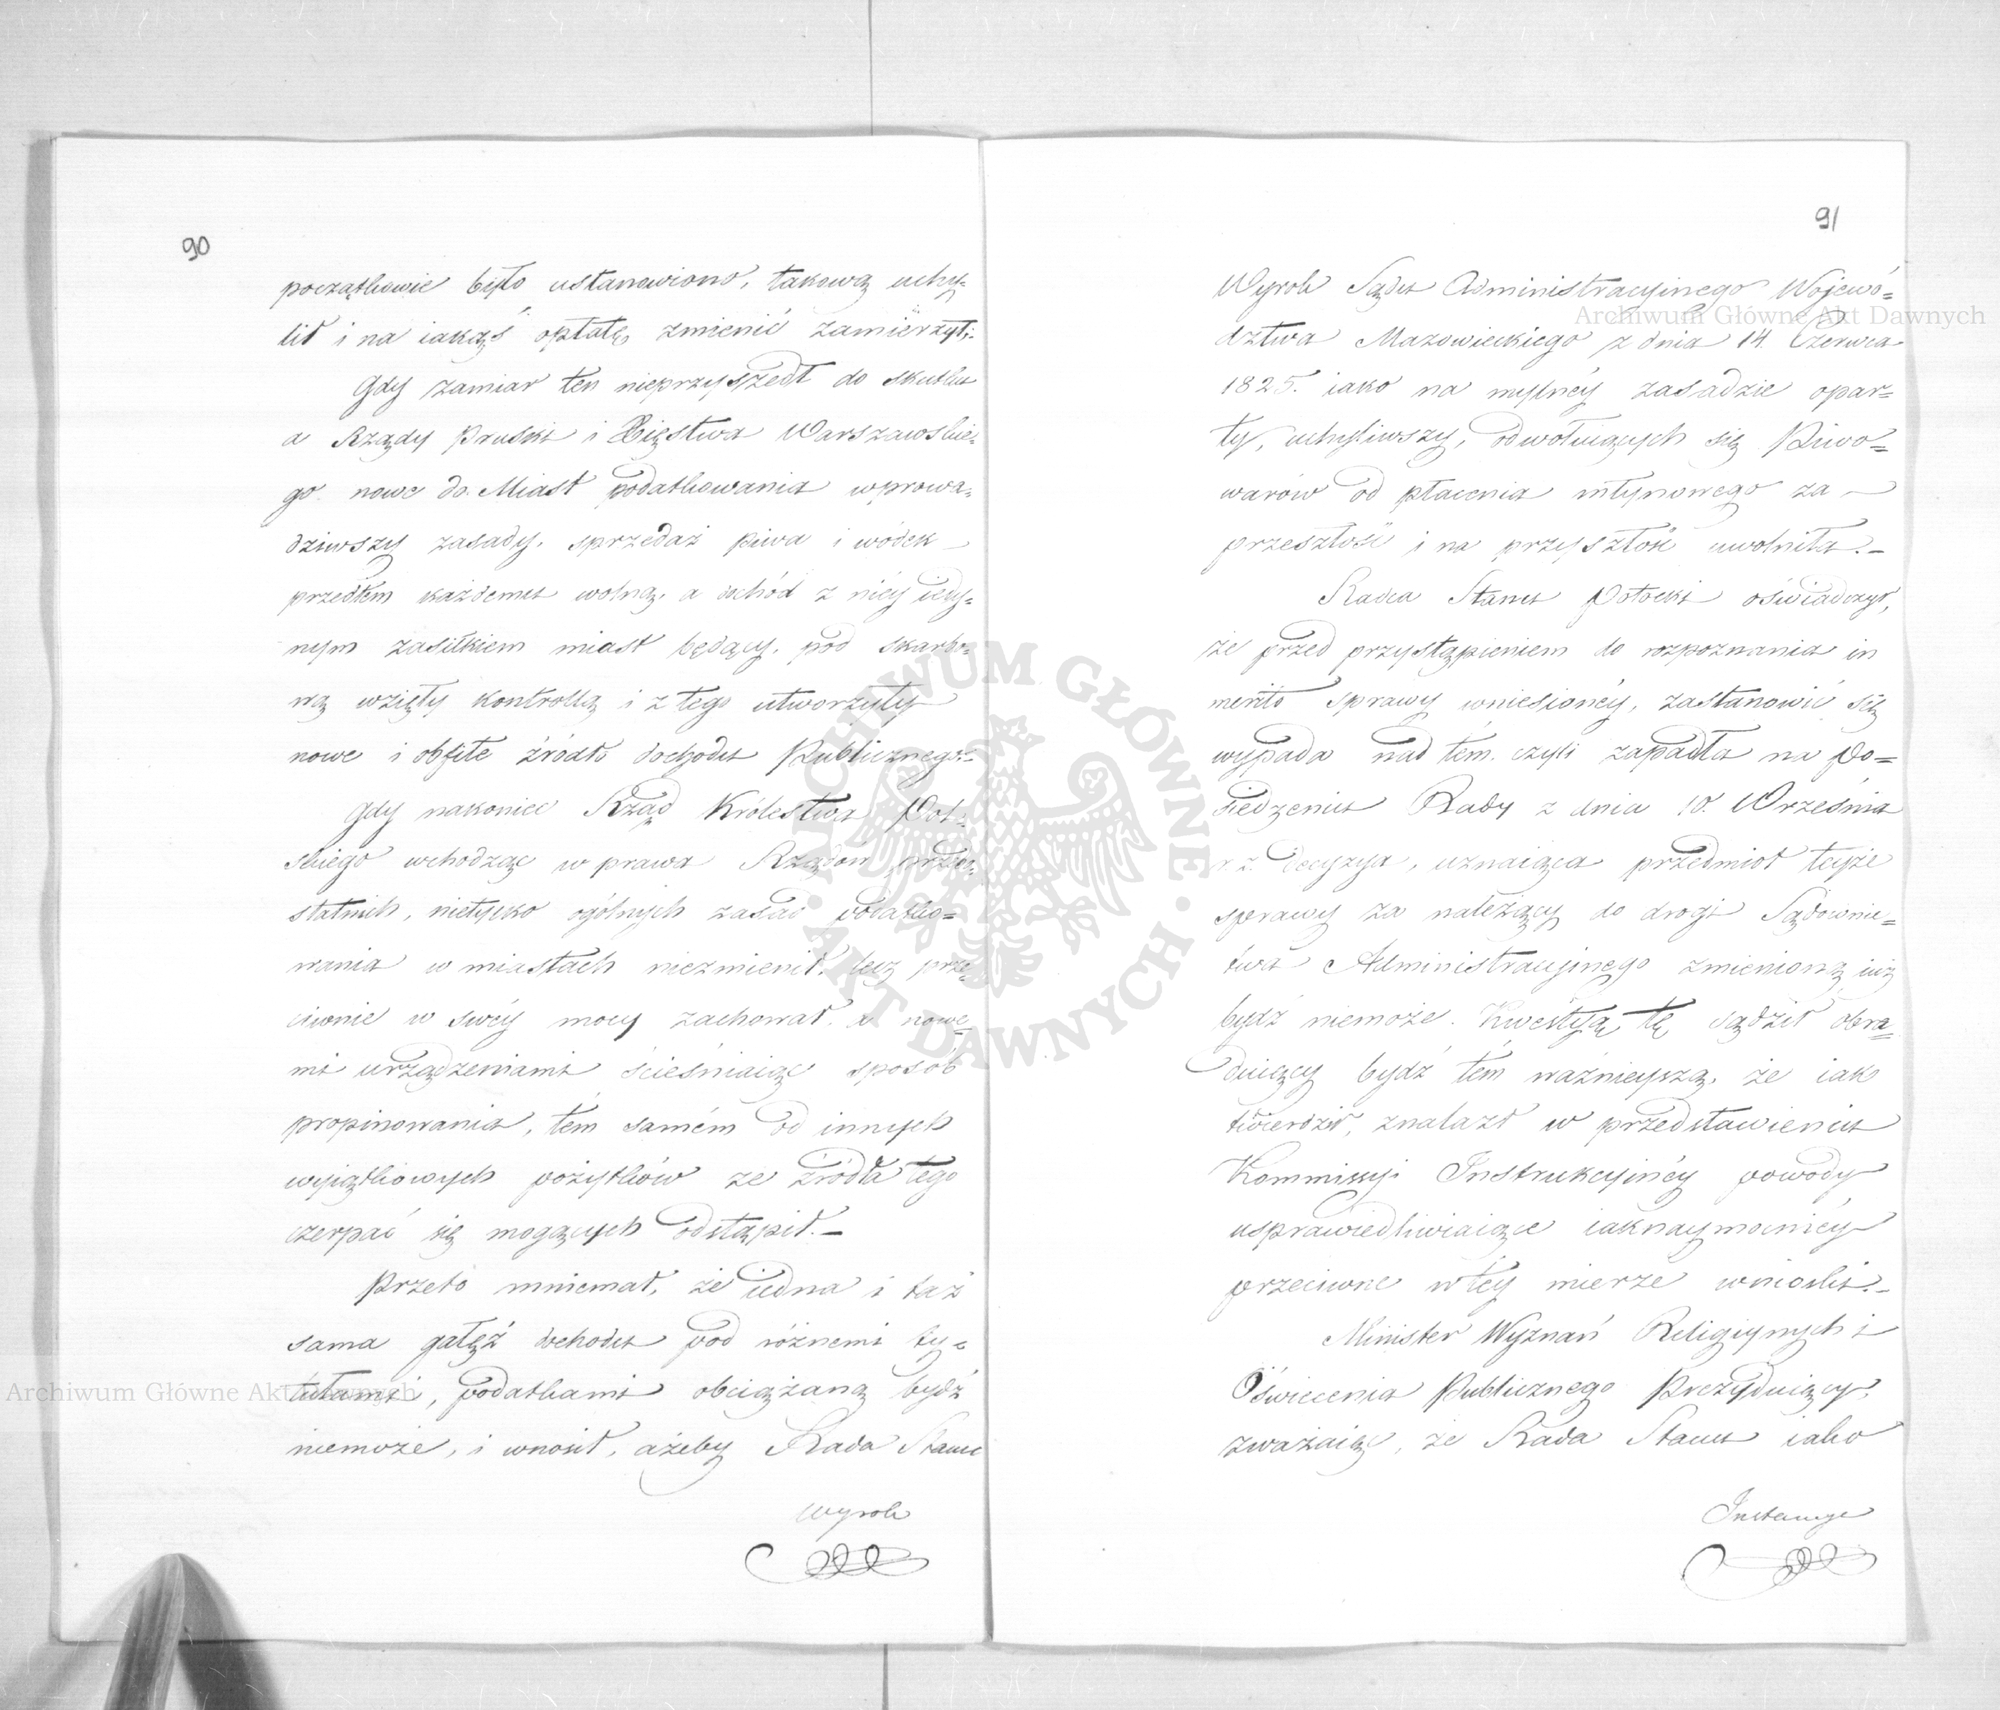 90
początkowie było ustanowiono, takową uchy-
lił i na iakąś opłatę, zmienić zamierzył;
Gdy zamiar ten nieprzyszedł do skutku
a Rządy Pruski i Xięstwa Warszawskie-
go nowe do Miast podatkowania wprowa-
dziwszy zasady, sprzedaż piwa i wódek
przedtem każdemu wolną, a dochód z niéy iedy-
nym zasiłkiem miast będący, pod skarbo-
wą wzięły kontrollą i z tego utworzyły
nowe i obfite źródło dochodu Publicznego.-
Gdy nakoniec Rząd Królestwa Pol-
skiego wchodząc w prawa Rządów przed-
statnich, nietylko ogólnych zasad podatko-
wania w miastach niezmienił, lecz prze-
ciwnie w swéy mocy zachował, a nowe-
mi urządzeniami ścieśniaiąc sposób
propinowania, tém samém od innych
wyiątkowych pożytków ze źródła tego
czerpać się mogących odstąpił.-
Przeto mniemał, że iedna i taż
sama gałęź dochodu pod różnemi ty-
tułami, podatkami obciążaną bydź
niemoże, i wnosił, ażeby Rada Stanu
Wyrok
91
Wyrok Sądu Administracyinego Wojewó-
dztwa Mazowieckiego z dnia 14. Czerwca
1825. iako na mylnéy zasadzie opar-
ty, uchyliwszy, odwołuiących się Piwo-
warów od płacenia młynowego za
przeszłość i na przyszłość uwolniła.-
Radca Stanu Potocki oświadczył,
że przed przystąpieniem do rozpoznania in
merito sprawy wniesionéy, zastanowić się
wypada nad tém, czyli zapadła na Po-
siedzeniu Rady z dnia 10. Września
r. z. decyzya, uznaiąca przedmiot teyże
sprawy za należący do drogi Sądownic-
twa Administracyinego zmienioną iuż
bydź niemoże. Kwestyą tę sądził obra-
duiący bydź tém ważnieyszą, że iak
twierdził, znalazł w przedstawieniu
Kommissyi Instrukcyinéy powody
usprawiedliwiaiące iaknaymocniéy
przeciwne w téy mierze wnioski.-
Minister Wyznań Religiynych i
Oświecenia Publicznego Prezyduiący,
zważaiąc, że Rada Stanu iako
Instancye
Archiwum Główne Akt Dawnych
Archiwum Główne Akt Dawnych
ARCHIWUM GŁÓWNE · AKT DAWNYCH ·